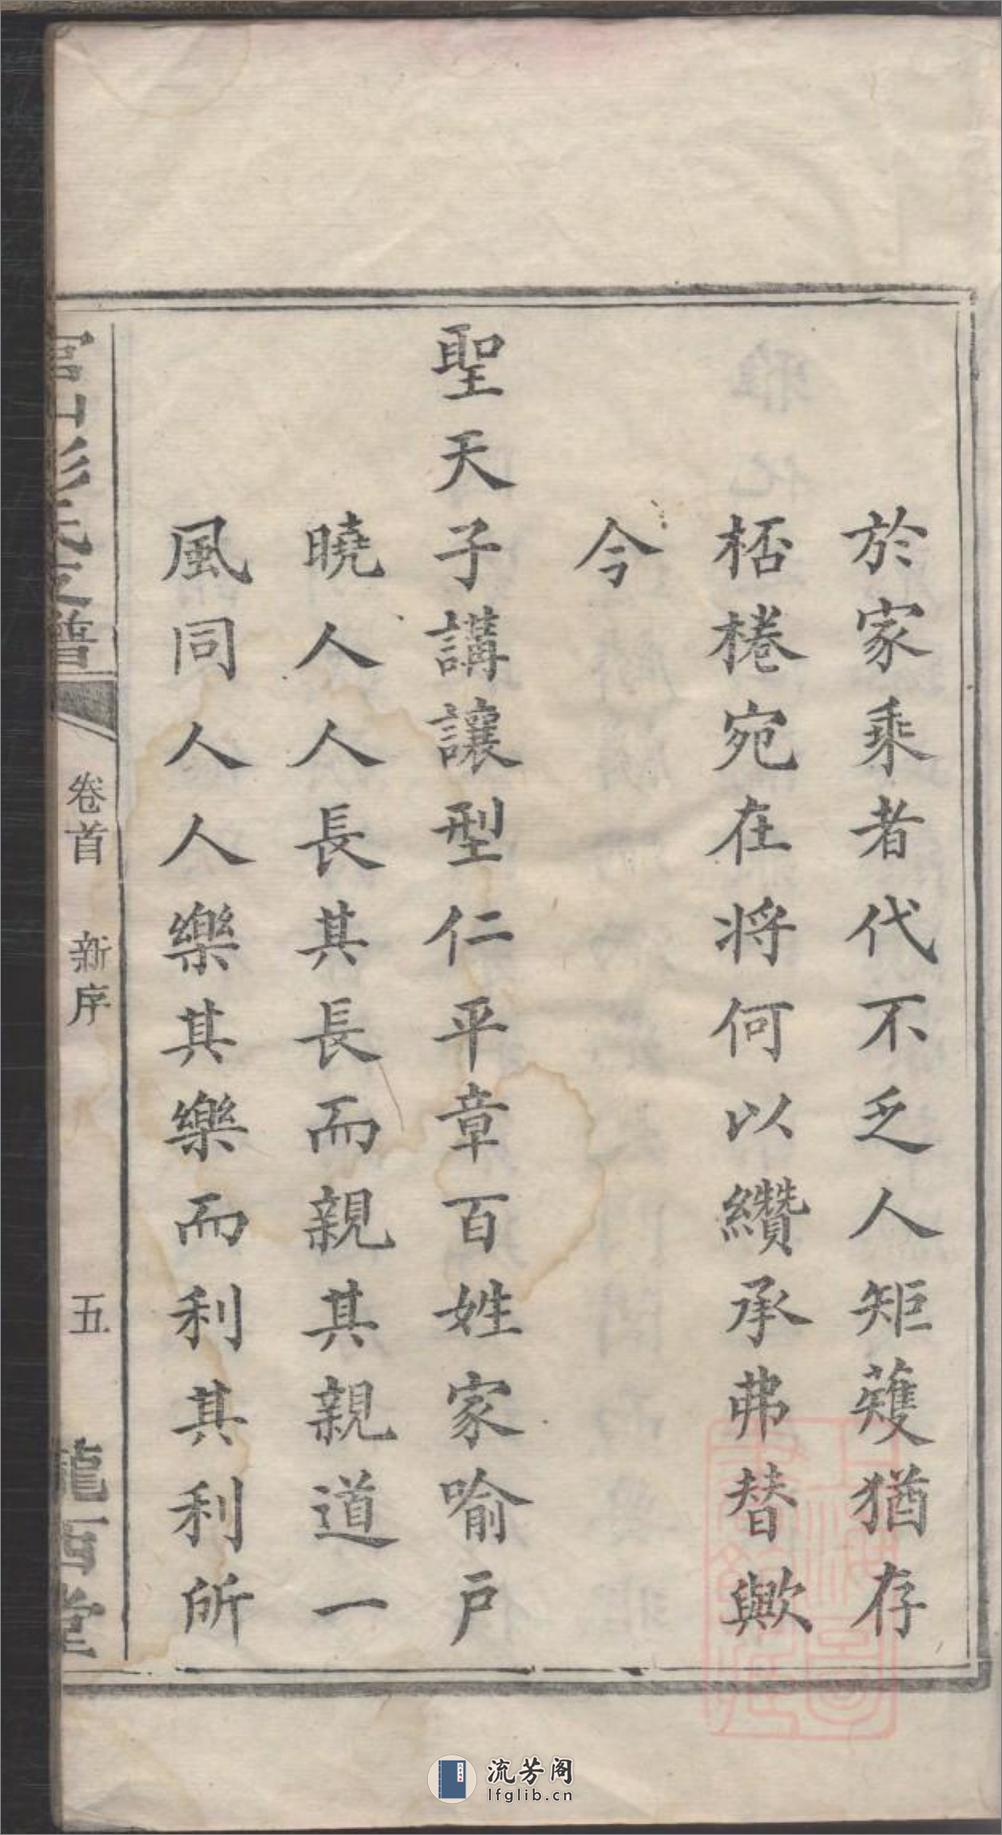 於家乘者代不乏人矩蒦猶存
桮棬宛在將何以纘承弗替歟
今
聖天子講讓型仁平章百姓家喻戶
曉人人長其長而親其親道一
風同人人樂其樂而利其利所
富山彭氏支譜
卷首
新序
五
隴西堂
流芳阁
lfglib.cn